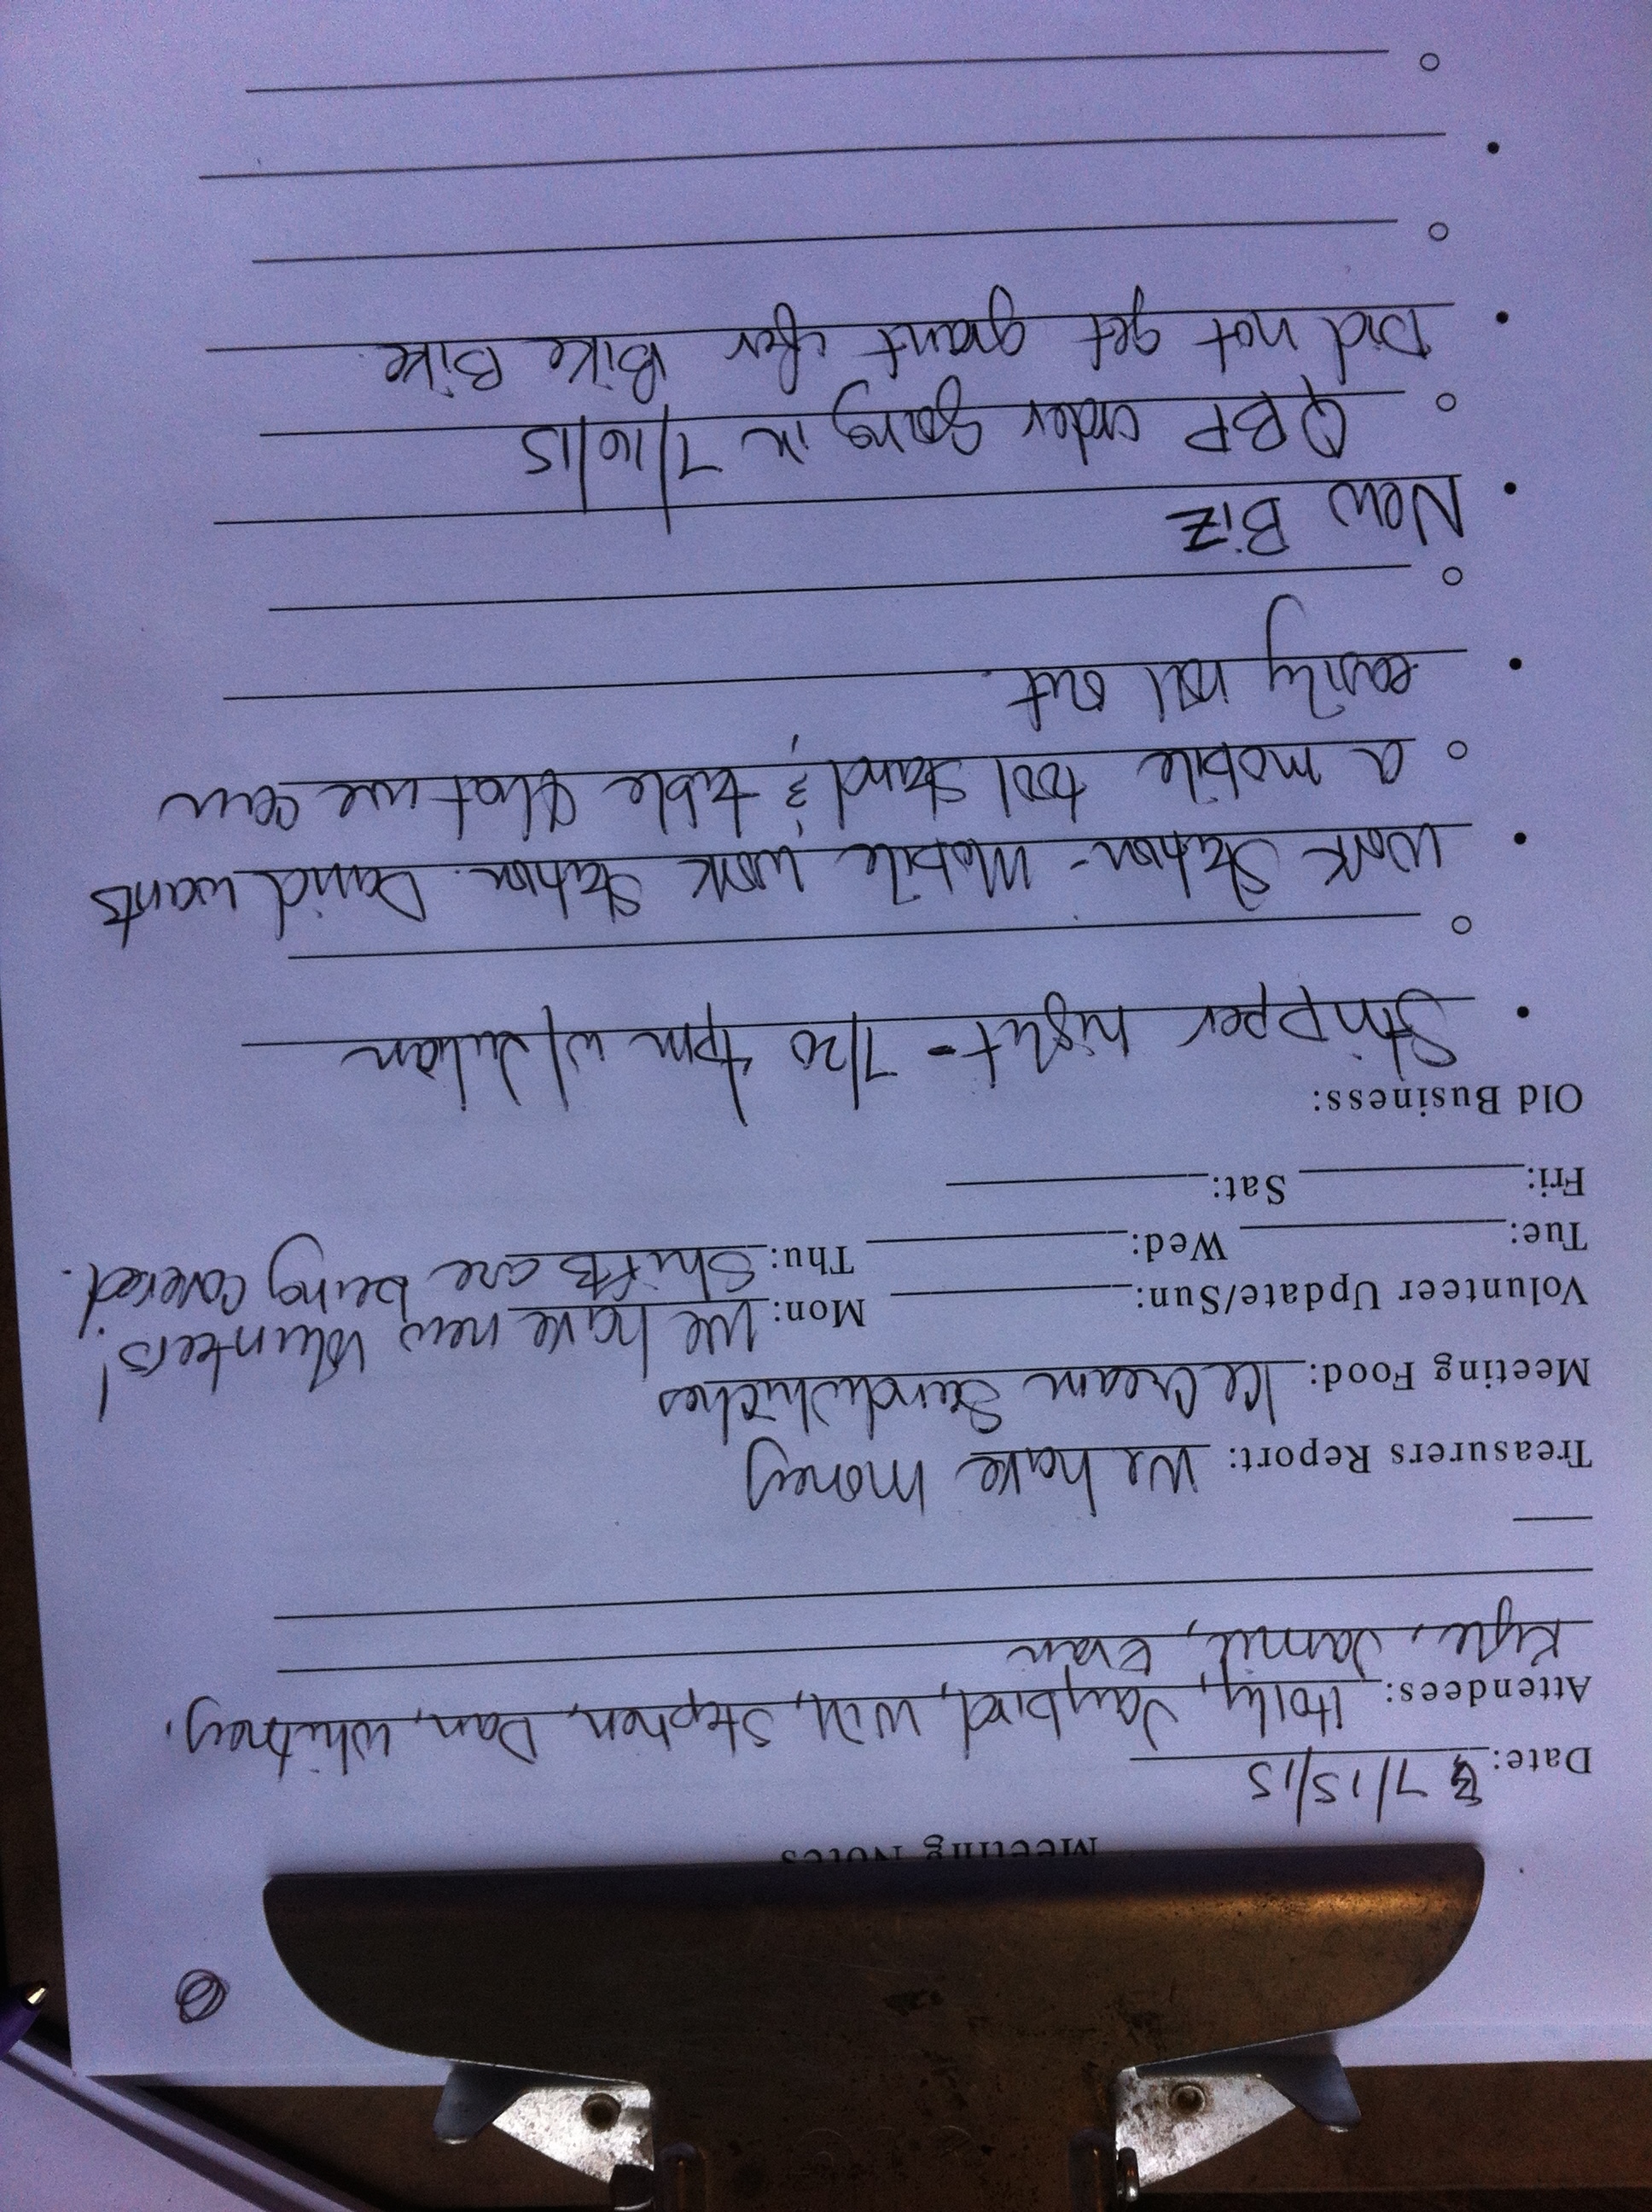 Meeting Notes
Date: 7/15/15
Attendees: Holly, Jaybird, Will, Stephen, Dan, Whitney,
Kyle, Jamie, Evan
Treasurers Report: We have money
Meeting Food: Ice Cream Sandwhiches
Volunteer Update/Sun: Mon: We have new volunteers!
Tue: Wed: Thu: Shifts are being covered.
Fri: Sat:
Old Business:
Stripper night - 7/20 4pm w/ Julian
Work Station - Mobile work station. David wants
a mobile tool stand & table that we can
easily roll out.
New Biz
QBP order going in 7/16/15
Did not get grant for Bike Bike.